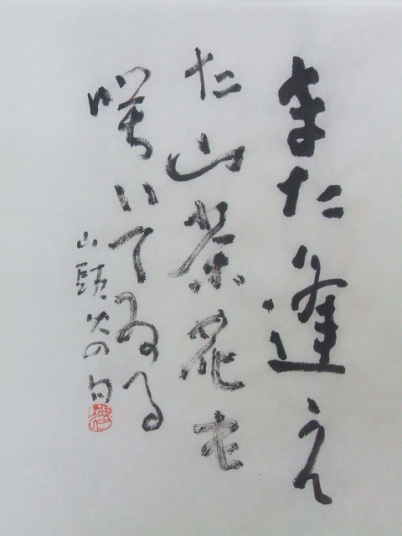 また逢えた
山茶花も
咲いてゐる
山頭火の句